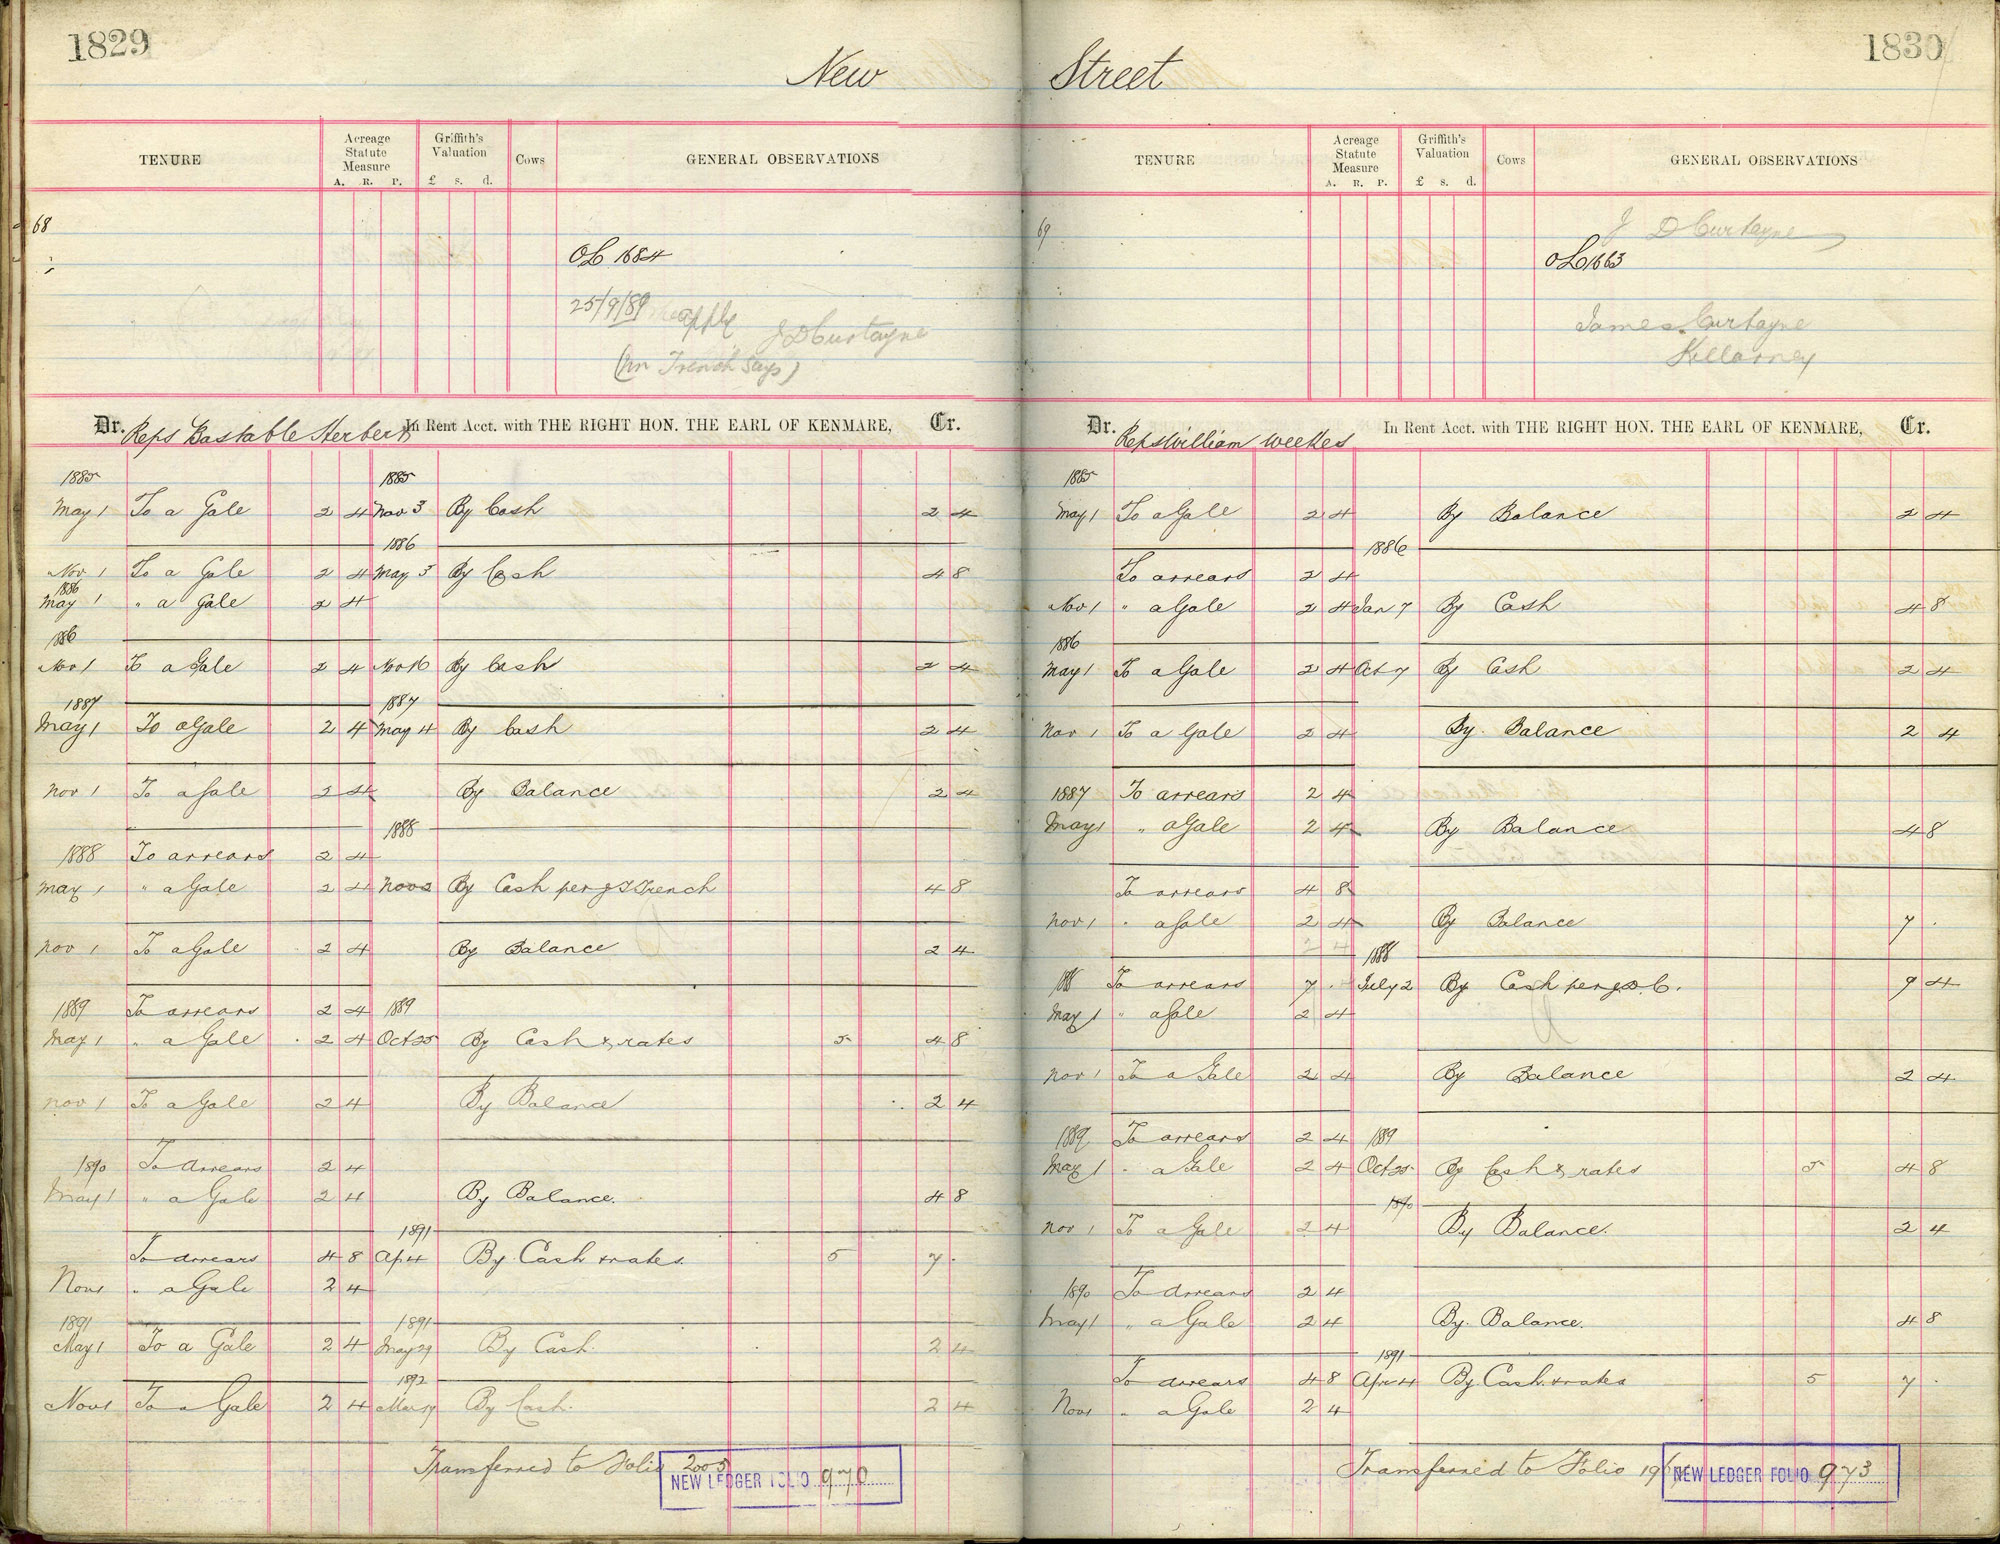 1829
New
TENURE Acreage Statute Measure A. R. P. Griffith's Valuation £ s. d. Cows GENERAL OBSERVATIONS
68
OL 1684
25/9/89 apply J D Curtayne
(Mr Trench says)
Dr. Reps Bastable Herbert In Rent Acct. with THE RIGHT HON. THE EARL OF KENMARE, Cr.
1885 1885
May 1 To a Gale 2 4 Nov 3 By Cash 2 4
1886
Nov 1 To a Gale 2 4 May 3 By Cash 4 8
1886
May 1 " a Gale 2 4
1886
Nov 1 To a Gale 2 4 Nov 16 By Cash 2 4
1887 1887
May 1 To a Gale 2 4 May 4 By Cash 2 4
Nov 1 To a Gale 2 4 By Balance 2 4
1888
1888 To arrears 2 4
May 1 " a Gale 2 4 Nov 2 By Cash per Trench 4 8
Nov 1 To a Gale 2 4 By Balance 2 4
1889 To arrears 2 4 1889
May 1 " a Gale 2 4 Oct 25 By Cash & rates 5 4 8
Nov 1 To a Gale 2 4 By Balance 2 4
1890 To arrears 2 4
May 1 " a Gale 2 4 By Balance. 4 8
1891
To arrears 4 8 Ap 4 By Cash & rates. 5 7 .
Nov 1 " a Gale 2 4
1891 1891
May 1 To a Gale 2 4 May 29 By Cash 2 4
1892
Nov 1 To a Gale 2 4 Mar 19 By Cash. 2 4
Transferred to Folio 2005
NEW LEDGER FOLIO 970
1830
Street
TENURE Acreage Statute Measure A. R. P. Griffith's Valuation £ s. d. Cows GENERAL OBSERVATIONS
69
J D Curtayne
OL 1663
James Curtayne
Killarney
Dr. Reps William Weekes In Rent Acct. with THE RIGHT HON. THE EARL OF KENMARE, Cr.
1885
May 1 To a Gale 2 4 By Balance 2 4
1886
To arrears 2 4
Nov 1 " a Gale 2 4 Jan 7 By Cash 4 8
1886
May 1 To a Gale 2 4 Oct 7 By Cash 2 4
Nov 1 To a Gale 2 4 By Balance 2 4
1887 To arrears 2 4
May 1 " a Gale 2 4 By Balance 4 8
To arrears 4 8
Nov 1 " a Gale 2 4 By Balance 7 .
2 4
1888
188 To arrears 7 . July 2 By Cash per 9 4
May 1 " a Gale 2 4
Nov 1 To a Gale 2 4 By Balance 2 4
1889 To arrears 2 4 1889
May 1 " a Gale 2 4 Oct 25 By Cash & rates 5 4 8
1890
Nov 1 To a Gale 2 4 By Balance. 2 4
1890 To arrears 2 4
May 1 " a Gale 2 4 By Balance. 4 8
1891
To arrears 4 8 Apr 4 By Cash & rates 5 7 .
Nov 1 " a Gale 2 4
Transferred to Folio
NEW LEDGER FOLIO 973